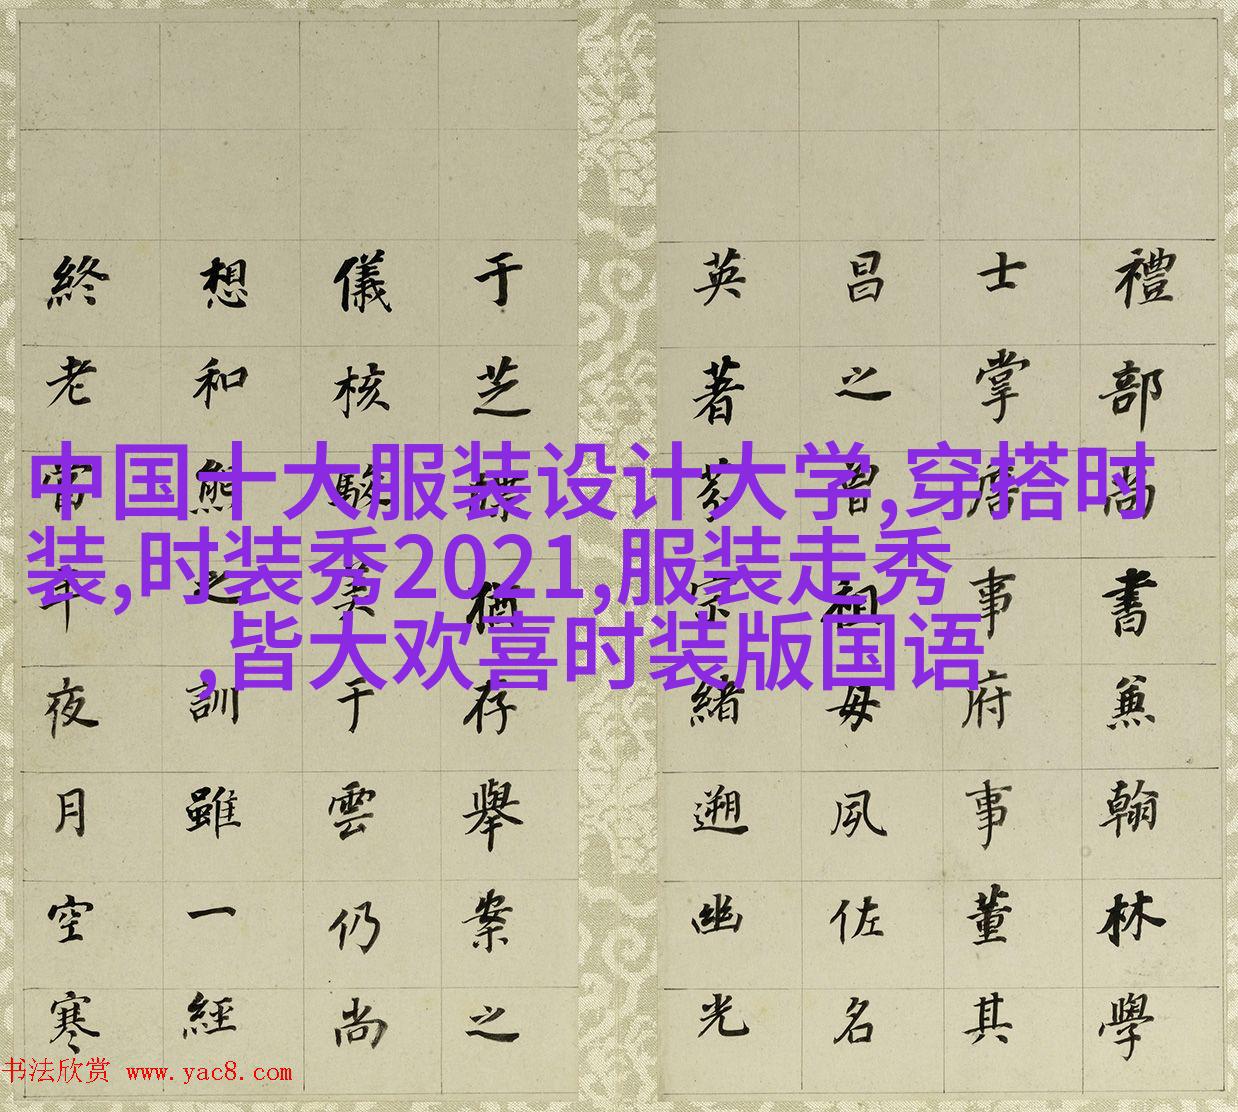 禮部尚書兼翰林學
士掌詹事府事董其
昌之曾祖母夙佐名
英著芬宗緒遡幽光
于芝猶存舉案之
儀核駿美于雲仍尚
想和熊之訓雖一經
終老當年夜月空寒
中国十大服装设计大学,穿搭时
装,时装秀2021,服装走秀
,皆大欢喜时装版国语
书法欣赏 www.yac8.com